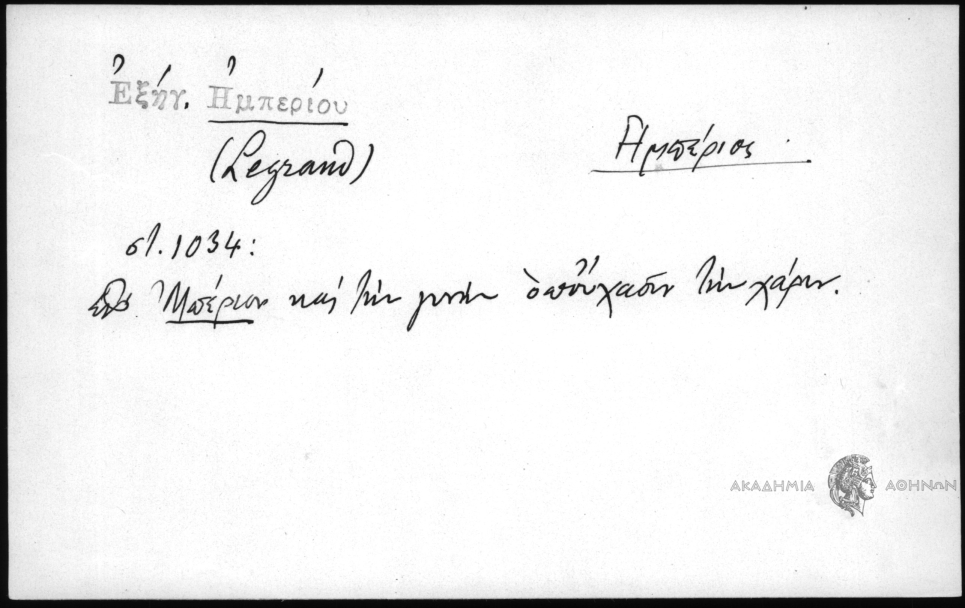 Ἐξήγ. Ἠμπερίου
(Legrand)
Ἠμπέριος.
στ. 1034:
Ἠμπέριον καὶ τὴν γυνὴν ὁποὔχασιν τὴν χάριν.
ΑΚΑΔΗΜΙΑ ΑΘΗΝΩΝ